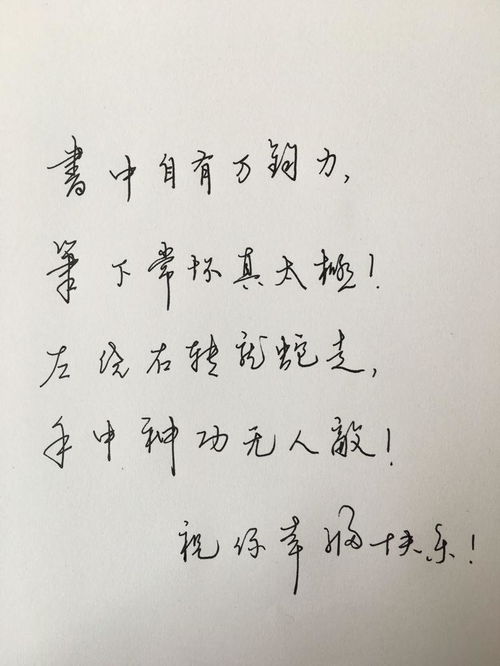 書中自有万鈞力,
筆下常怀真太極!
左绕右转龙蛇走,
手中神功无人敵!
祝你幸福快乐!